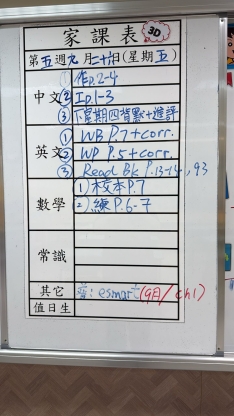 家課表 3D
第五週九月二十六日(星期五)
① 作P.2-4
中文 ② 工p.1-3
③ 下星期四背默+進評
① WB P.7+corr.
英文 ② WP P.5+corr.
③ Read Bk P.13-14, 93
數學 1) 校本P.7
2) 練P.6-7
常識
其它 普: esmart(9月/ch1)
值日生